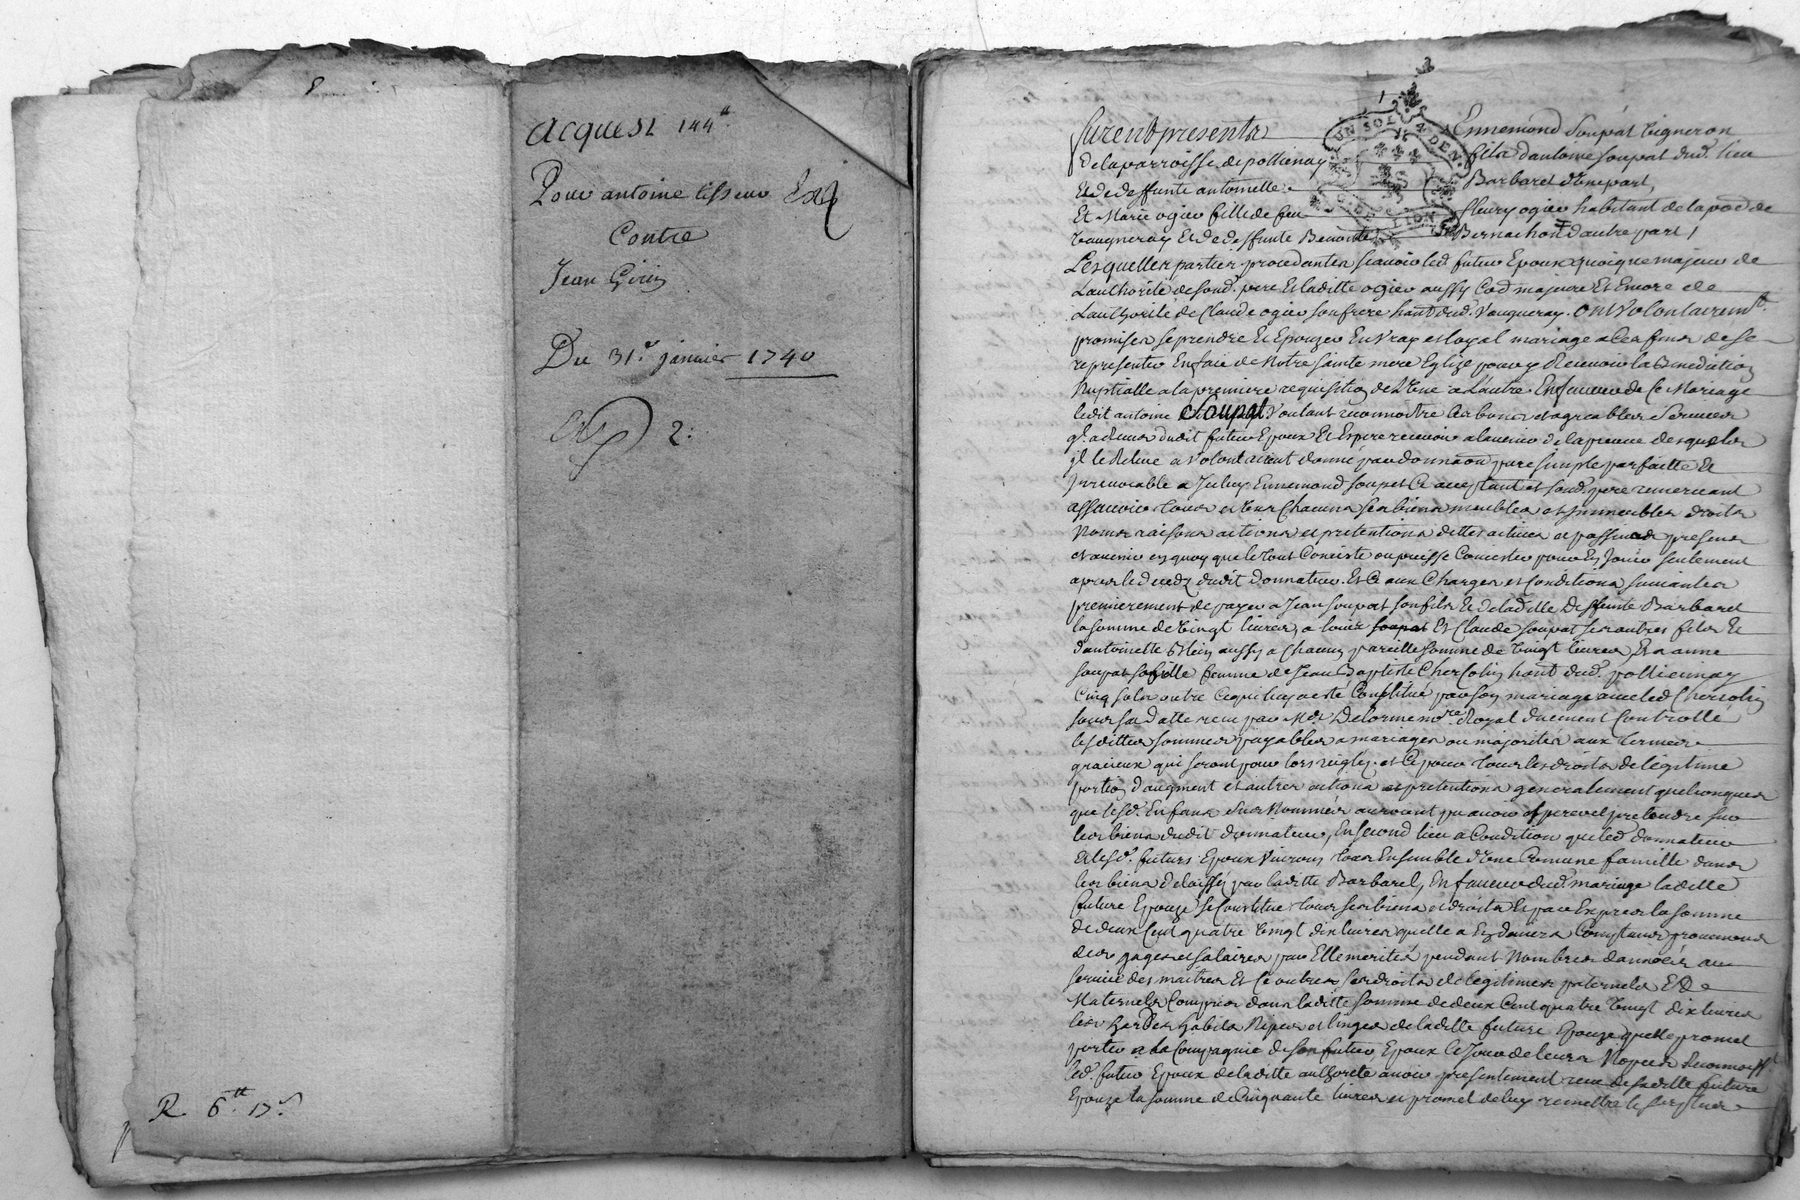 acquest 144#
Pour antoine tisseur Exp
Contre
Jean Girin
Du 31e janvier 1740
2:
R 6tt 17s
3
1
UN SOL 4 DEN.
G. DE LION
furent presents Ennemond Soupat Vigneron
de la parroisse de pollienay fils dantoine soupat dud. lieu
Et de deffunte antoinette Barbaret d'Une part,
Et Marie ogier fille de feu fleury ogier habitant de la pare de
Vaugneray Et de deffunte Benoiste Bernachon d'autre part,
Lesquelles parties procedantes scavoir led. futeur Epoux quoique majeur de
Lauthorité de sond. pere Et laditte ogier aussy majeure Et Encore de
Lauthorité de Claude ogier son frere hant dud. Vaugneray. ont Volontairemt.
promises se prendre Et Epouzer En Vray et loyal mariage a ces fins de se
representer En face de Notre sainte mere Eglize pour y Recevoir la Benediction
Nuptialle a la premiere requisition de L'Une a L'autre. En faveur de Ce Mariage
ledit antoine Soupat Voulant reconnoitre les bons et agreables services
qu'il a Reçus dudit futeur Epoux Et Espere recevoir a lavenir de la preuve desquels
il le Releve a Volontairemt donné par donnaon pure simple parfaitte Et
Irrevocable a Iceluy Ennemond soupat Ce acceptant et sond. pere remerciant
assavoir tous et Uns Chacuns ses biens meubles et immeubles droits
Noms raisons actions et pretentions dettes actives et passives presens
et avenir en quoy que le tout Conciste ou puisse Concister pour En Jouir seulement
apres le deceds dudit donnateur. Et Ce aux Charges et Conditions suivantes
premierement de payer a Jean soupat son fils Et de laditte deffunte Barbaret
la somme de Vingt livres, a louis soupat Et Claude soupat ses autres fils Et
d'antoinette aussy a Chacun pareille somme de Vingt livres Et a anne
soupat sa fille femme de Jean Baptiste Chercoliy hant dud. pollienay
Cinq sols outre Ce qui luy a esté Constitué par son mariage avec led Chercoliy
sous sa datte recu par Me Delorme nore. Royal duement Controllé
lesdittes sommes payables a mariages ou majorités aux termes
gratieux qui seront pour lors reiglés. et Ce pour tous les droits de legitime
portion d'augment et autres actions et pretentions generalement quelconques
que lesd. Enfans sus Nommés auroient pu avoir et pretendre sur
les biens dudit donnateur, En second lieu a Condition que led. donnateur
Et lesd. futurs Epoux Vivrons tous Ensemble d'Une Comune famille dans
les biens delaissés par laditte Barbaret, En faveur dud. mariage laditte
future Epouze se Constitue tous ses biens et droits Et par Expres la somme
de deux Cent quatre Vingt dix livres quelle a En deniers Comptans provenus
des gages et salaires par Elle merités pendant Nombres dannées au
service des maitres Et Ce outre ses droits de legitimes paternels Et
Maternels Compris dans laditte somme de deux Cent quatre Vingt dix livres
les hardes habits Nipes et linges de laditte future Epouze quelle promet
porter a la Compagnie de son futeur Epoux le Jour de leurs Nopces Reconnoist
led. futeur Epoux de laditte authorité avoir presentement recu de laditte future
Epouze la somme de Cinquante livres et promet de luy remettre le surplus